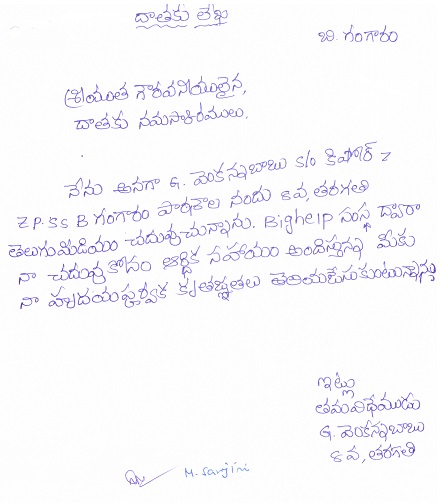 దాతకు లేఖ
బి. గంగారం
శ్రీయుత గౌరవనీయులైన,
దాతకు నమస్కారములు.
నేను అనగా G. వెంకన్నబాబు S/o కిషోర్ Z
Z.P.SS B గంగారం పాఠశాల నందు 8వ, తరగతి
తెలుగుమీడియం చదువుచున్నాను. Bighelp సంస్థ ద్వారా
నా చదువు కోసం ఆర్థిక సహాయం అందిస్తున్న మీకు
నా హృదయపూర్వక కృతజ్ఞతలు తెలియజేసుకుంటున్నాను
ఇట్లు
తమవిధేముడు
G. వెంకన్నబాబు
8వ, తరగతి
M. Sanjini